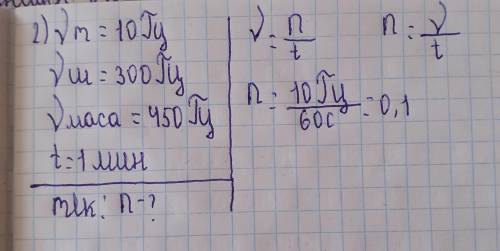 2) νт = 10 Гц
νш = 300 Гц
νмаса = 450 Гц
t = 1 мин
т/к: n - ?
ν = n/t
n = ν/t
n = 10 Гц/60с = 0,1